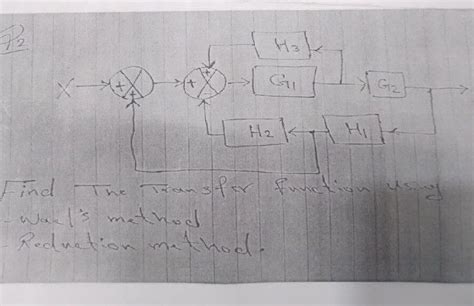 P2
H3
X + + + + + G1 G2
H2 H1
Find The Transfer function using
- Wael's method
- Reduction method.